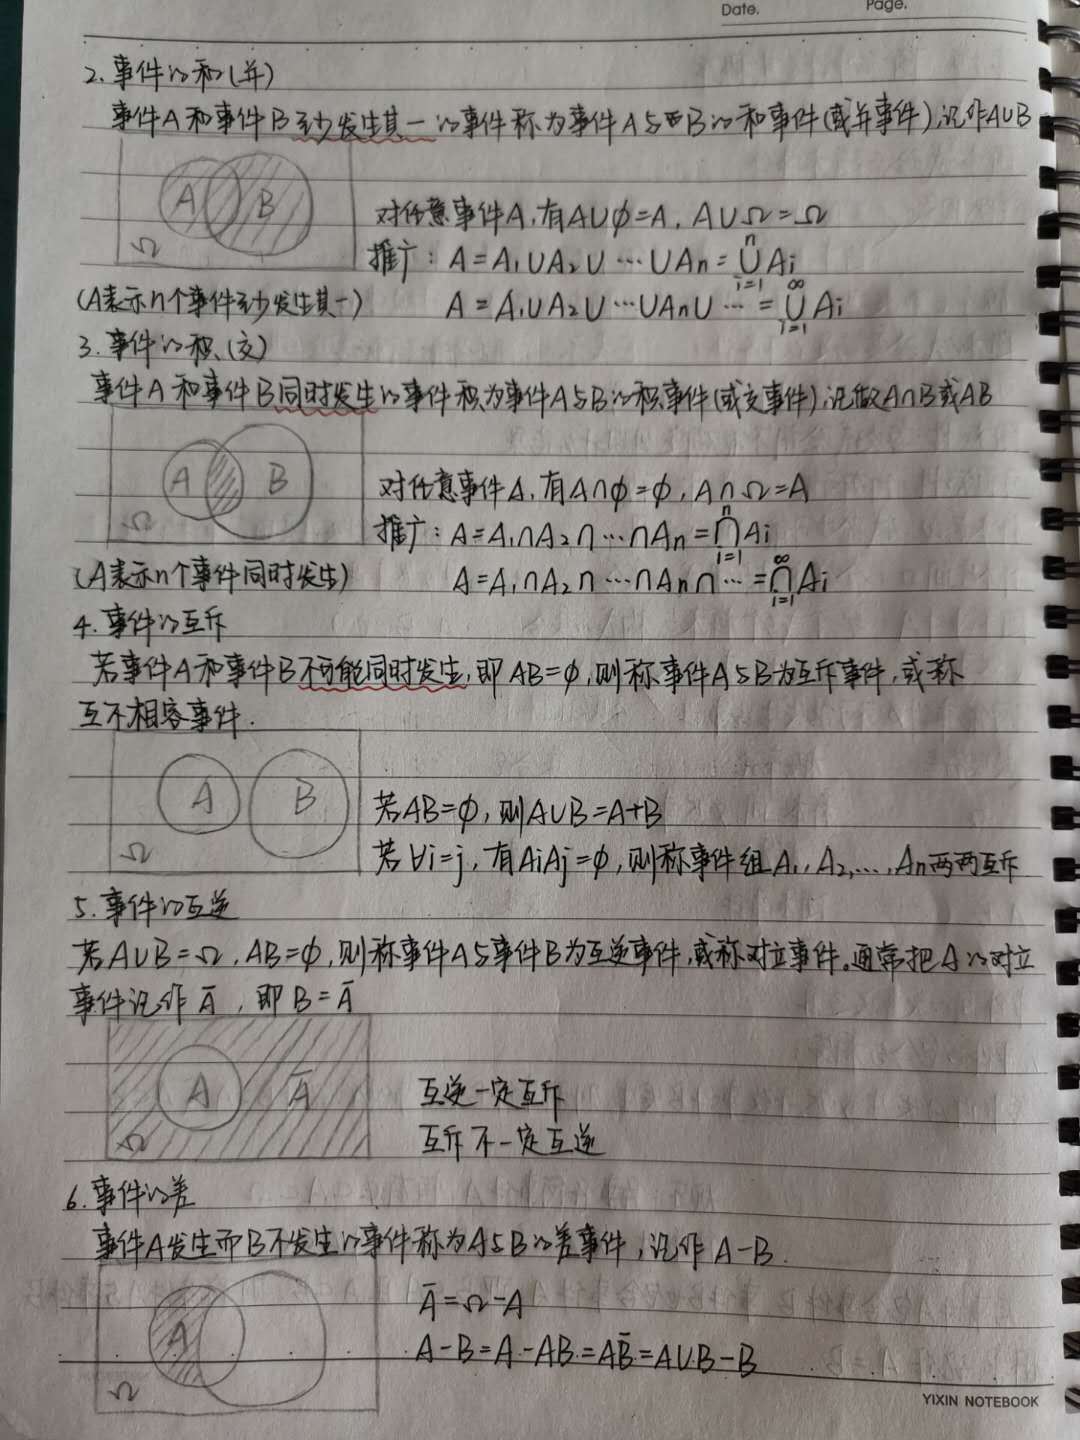 Date.
Page.
2.事件的和(并)
事件A和事件B至少发生其一的事件称为事件A与B的和事件(或并事件),记作A∪B
A B
对任意事件A,有A∪φ=A, A∪Ω=Ω
Ω
推广: A=A₁∪A₂∪…∪Aₙ=⋃ⁿᵢ₌₁Aᵢ
(A表示n个事件至少发生其一)
A=A₁∪A₂∪…∪Aₙ∪…=⋃^∞ᵢ₌₁Aᵢ
3.事件的积(交)
事件A和事件B同时发生的事件积为事件A与B的积事件(或交事件),记做A∩B或AB
A B
对任意事件A,有A∩φ=φ, A∩Ω=A
Ω
推广: A=A₁∩A₂∩…∩Aₙ=⋂ⁿᵢ₌₁Aᵢ
(A表示n个事件同时发生)
A=A₁∩A₂∩…∩Aₙ∩…=⋂^∞ᵢ₌₁Aᵢ
4.事件的互斥
若事件A和事件B不可能同时发生,即AB=φ,则称事件A与B为互斥事件,或称
互不相容事件.
A B
若AB=φ,则A∪B=A+B
Ω
若∀i=j,有AᵢAⱼ=φ,则称事件组A₁,A₂,…,Aₙ两两互斥
5.事件的互逆
若A∪B=Ω, AB=φ,则称事件A与事件B为互逆事件,或称对立事件。通常把A的对立
事件记作Ā,即B=Ā
A Ā
互逆一定互斥
Ω
互斥不一定互逆
6.事件的差
事件A发生而B不发生的事件称为A与B的差事件,记作A-B.
Ā=Ω-A
A
A-B=A-AB=AB̄=A∪B-B
Ω
YIXIN NOTEBOOK